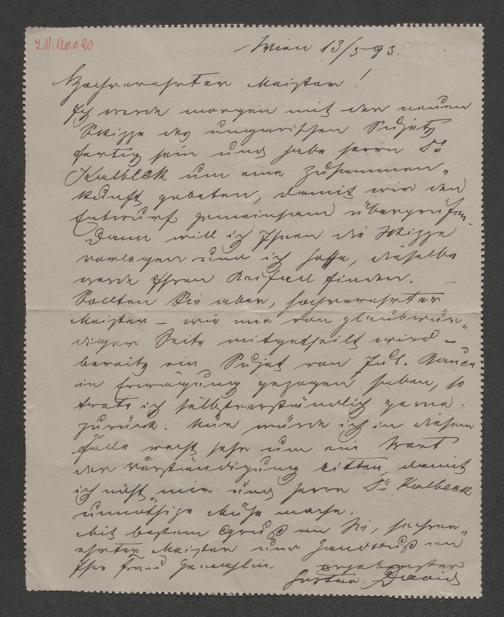 J.N. 120.020
Wien 13/5 93.
Hochverehrter Meister!
Ich werde morgen mit der neuen
Skizze des ungarischen Sujets
fertig sein und habe Herrn Dr
Kalbeck um eine Zusammen-
kunft gebeten, damit wir den
Entwurf gemeinsam überprüfen.
Dann will ich Ihnen die Skizze
vorlegen und ich hoffe, dieselbe
werde Ihren Beifall finden. —
Sollten Sie aber, hochverehrter
Meister – wie mir von glaubwür-
diger Seite mitgetheilt wird –
bereits ein Sujet von Jul. Bauer
in Erwägung gezogen haben, so
trete ich selbstverständlich gerne
zurück. Nur würde ich in diesem
Falle recht sehr um ein Wort
der Verständigung bitten, damit
ich nicht mir und Herrn Dr Kalbeck
unnöthige Mühe mache.
Mit bestem Gruß an Sie, hochver-
ehrter Meister und Handkuß an
Ihre Frau Gemahlin ergebenster
Gustav Davis